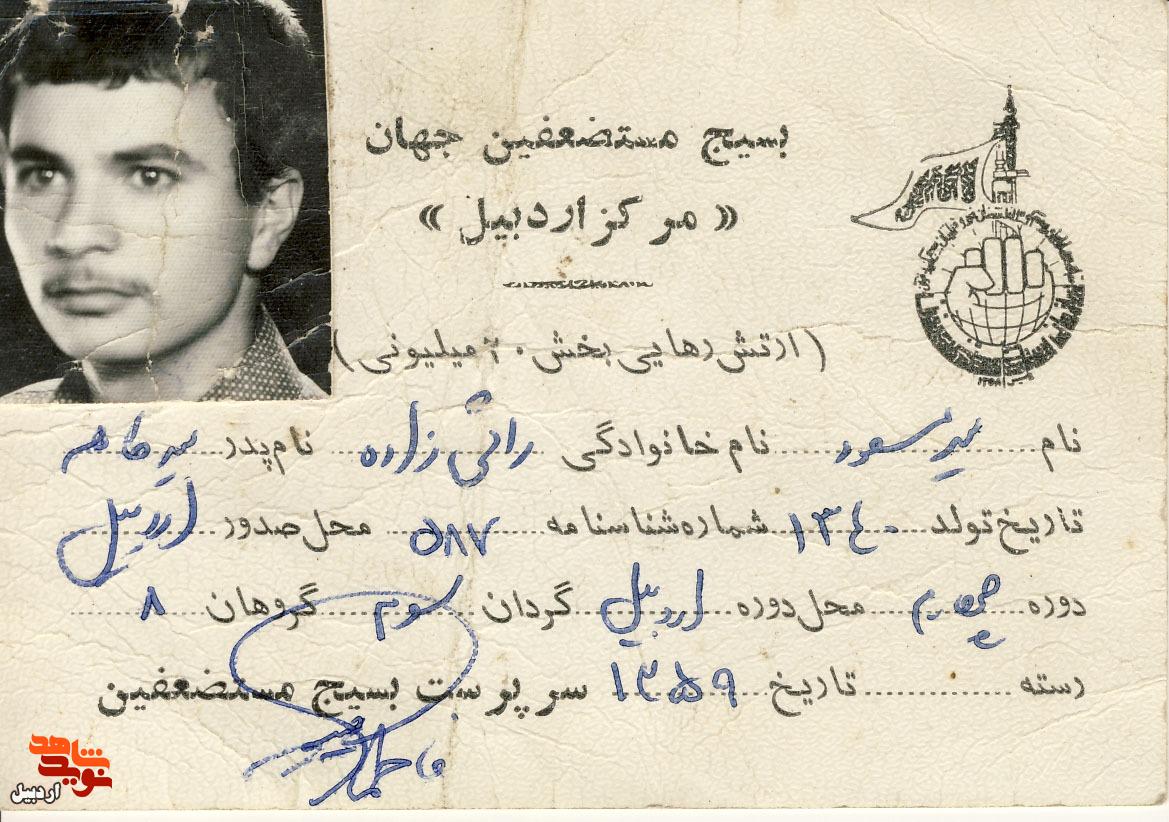 بسیج مستضعفین جهان
« مرکز اردبیل »
( ارتش رهایی بخش ۲۰ میلیونی )
نام سید مسعود نام خانوادگی زاده نام پدر سید طاهر
تاریخ تولد ۱۳۴۰ شماره شناسنامه ۵۸۷ محل صدور اردبیل
دوره چهارم محل دوره اردبیل گردان سوم گروهان ۸
رسته تاریخ ۱۳۵۹ سرپرست بسیج مستضعفین
نوید شاهد
اردبیل